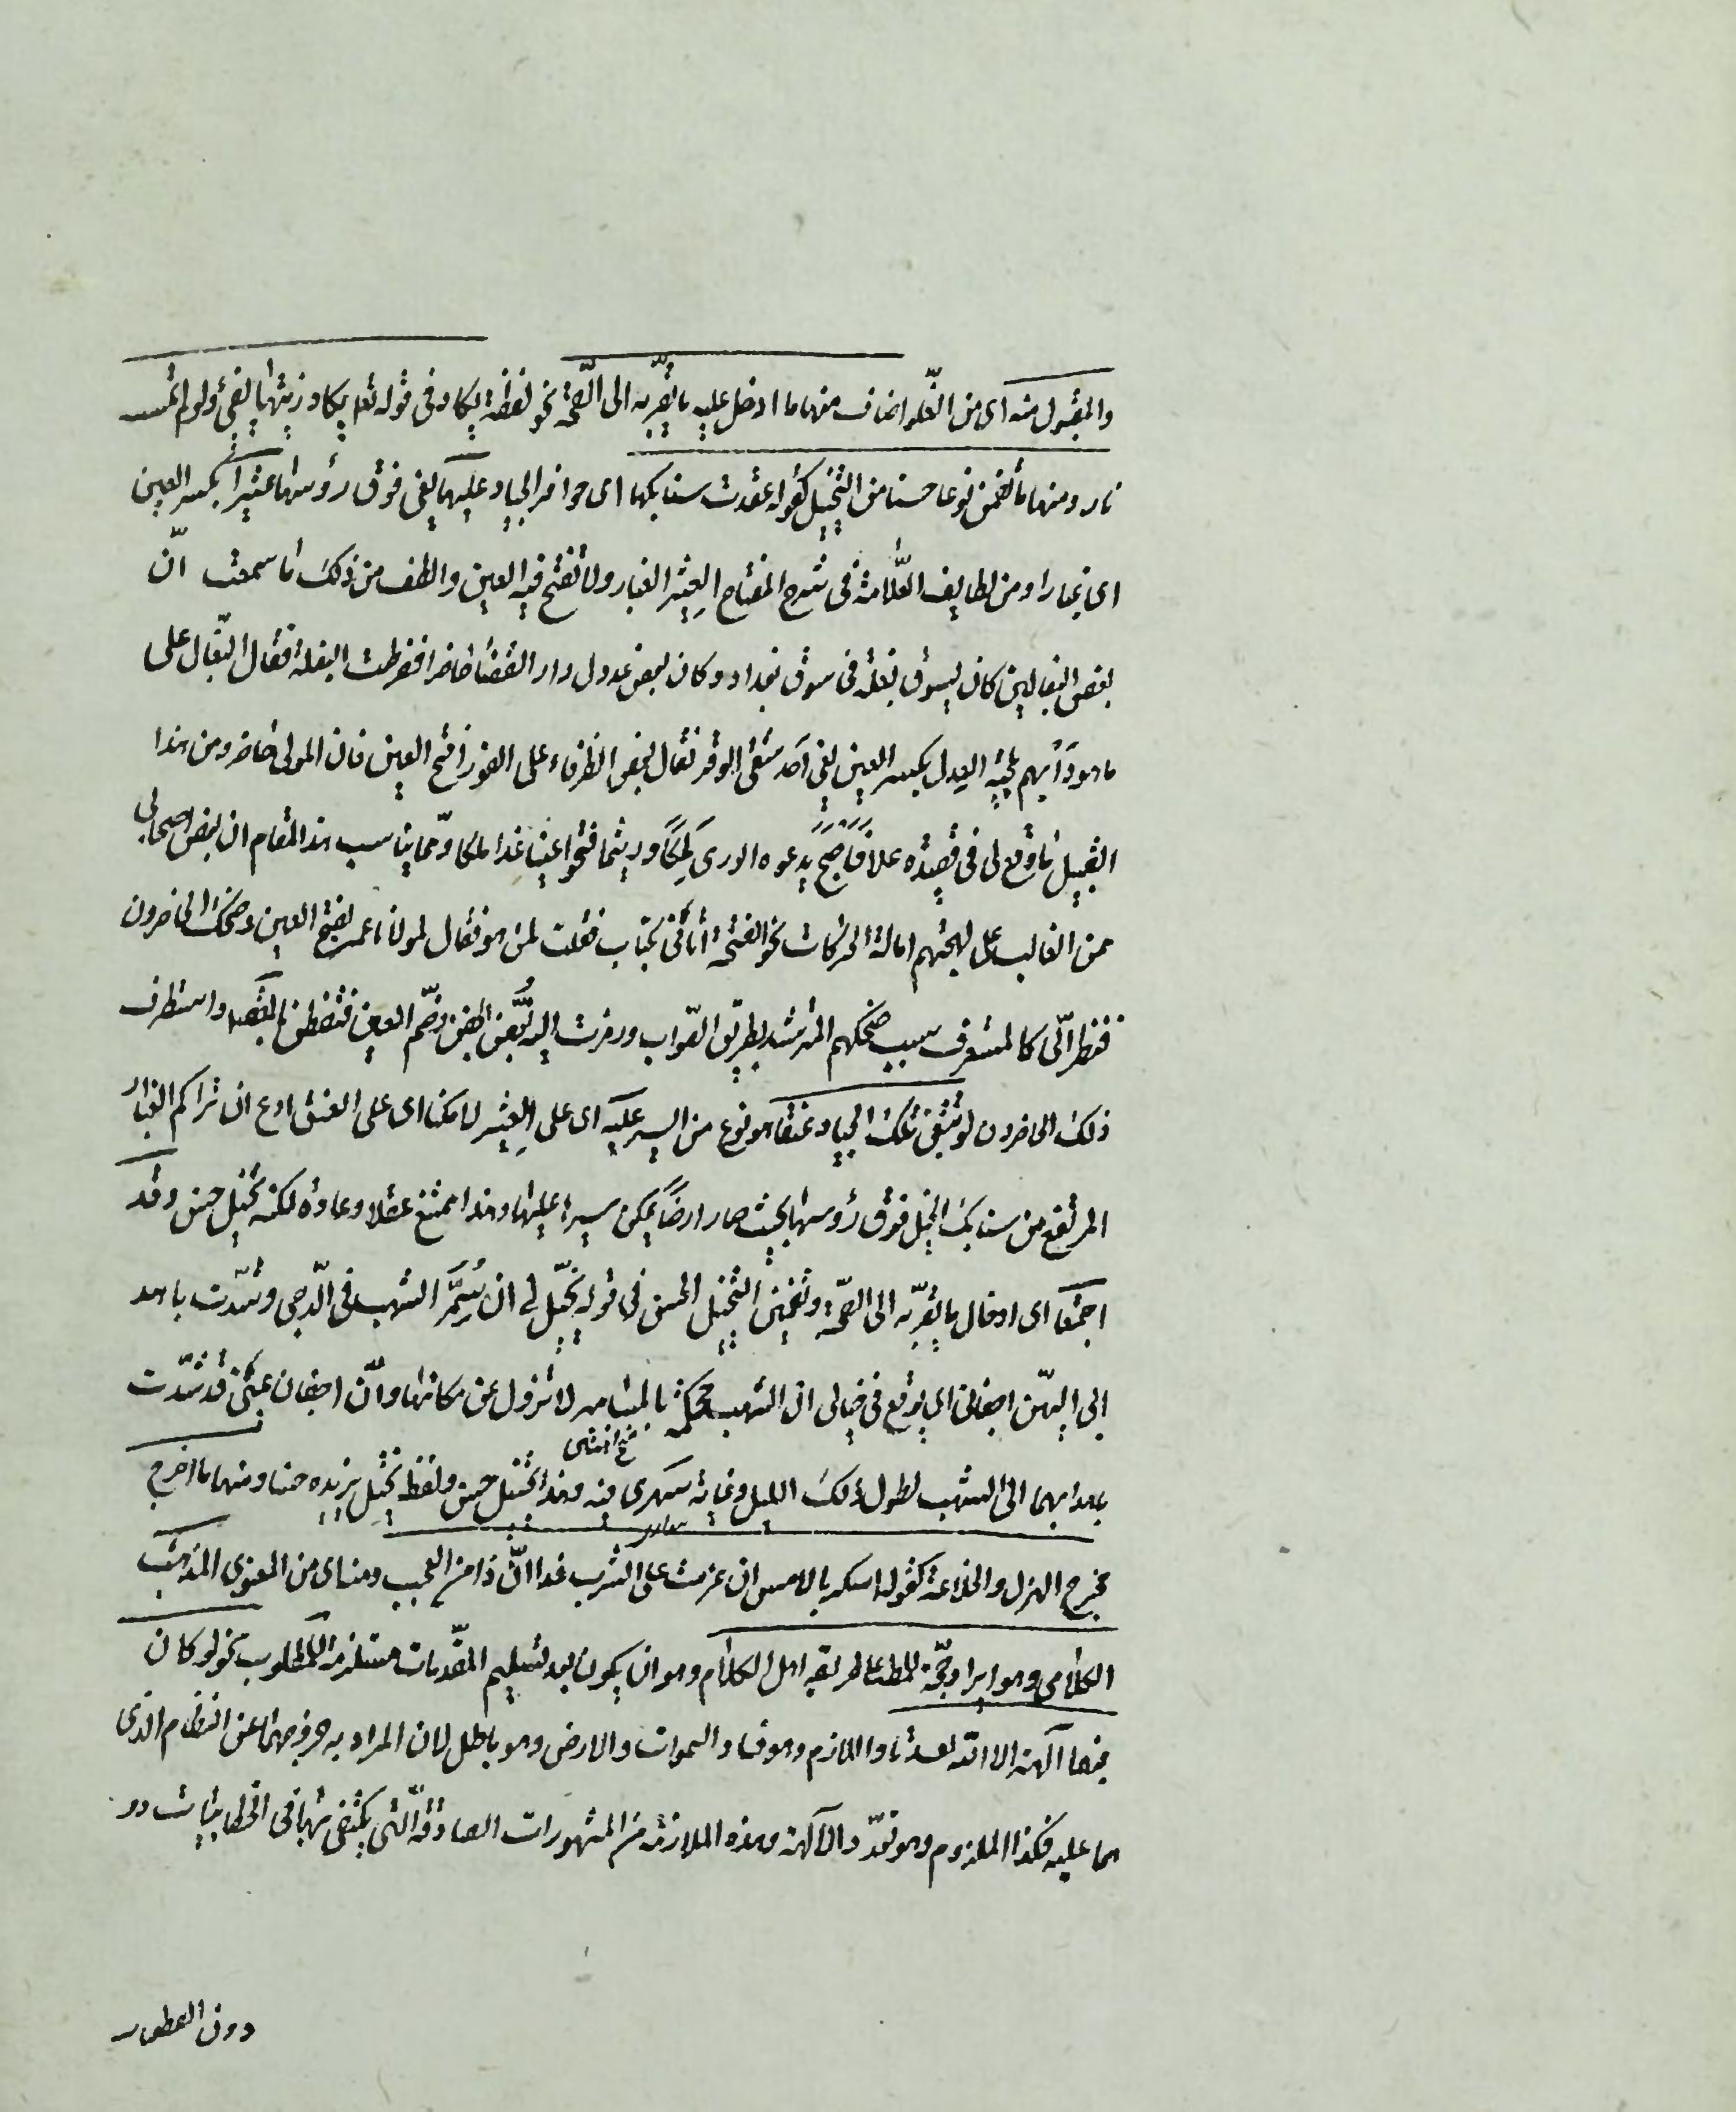 والمقبول منه اى من الغلو اصناف منها ما ادخل عليه ما يقربه الى الصحة نحو لفظة يكاد فى قوله تعا يكاد زيتها يضئ ولو لم تمسسه
نار ومنها ما تضمن نوعا حسنا من التخييل كقوله عقدت سنابكها اى حوافر الجياد عليها يعنى فوق رؤسها عثيرا بكسر العين
اى غبارا ومن لطايف العلامة فى شرح المفتاح العِثير الغبار ولا تفتح فيه العين والطف من ذلك ما سمعت انّ
بعض البغالين كان يسوق بغلة فى سوق بغداد وكان بعض عدول دار القضا حاضرا فضرطت البغلة فقال البغال على
ما هو دأبهم بلحية العِدل بكسر العين يعنى احد شقى الوقر فقال بعض الظرفاء على الفور افتح العين فان المولى حاضر ومن هذا
القبيل ما وقع لى فى قصيدة علا فاصبح يدعوه الورى ملكا وريثما فتحوا عينا غدا ملكا ومما يناسب هذا المقام ان بعض اصحابى
ممن الغالب على لهجتهم امالة الحركات نحو الفتحة اتانى بكتاب فقلت لمن هو فقال لمولانا عمر بفتح العين وضحك الحاضرون
فنظر الىّ كالمتعرف سبب ضحكهم المسترشد بطريق الصواب ورمزت اليه بغض الجفن وضم العين فتفطن بالمقصد واستظرف
ذلك الحاضرون لو تبتغى تلك الجياد عنقا هو نوع من السير عليه اى على العِثير لامكنا اى على العنق ادعى ان تراكم الغبار
المرتفع من سنابك الخيل فوق رؤسها بحيث صار ارضا يمكن سيرها عليها وهذا ممتنع عقلا وعادة لكنه تخييل حسن وقد
اجتمعا اى ادخال ما يقربه الى الصحة وتضمين التخييل الحسن فى قوله يخيّل لى ان سُمّر الشهب فى الدّجى وشدّت باهد
ابى اليهنّ اجفانى اى يوقع فى خيالى ان الشهب محكمة بالمسامير لا تزول عن مكانها وانّ اجفان عينى قد شدّت
باهدابها الى الشهب لطول ذلك الليل وغاية سهرى فيه وهذا تخييل حسن ولفظ يخيل يزيده حسنا ومنها ما اخرج
مخرج الهزل والخلاعة كقوله اسكر بالامس ان عزمت على الشرب غدا انّ ذا من العجب ومنه اى من المعنوى المذهب
الكلامى وهو ايراد حجّة للمط على طريقة اهل الكلام وهو ان يكون بعد تسليم المقدمات مستلزمة للمطلوب نحو لو كان
فيهما آلهة الا الله لفسدتا واللازم وهو فساد السموات والارض وهو باطل لان المراد به خروجهما عن النظام الذى
هما عليه فكذا الملزوم وهو تعدّد الآلهة وهذه الملازمة من المشهورات الصادقة التى يكتفى بها فى الخطابيات دو
دون القطعيـ